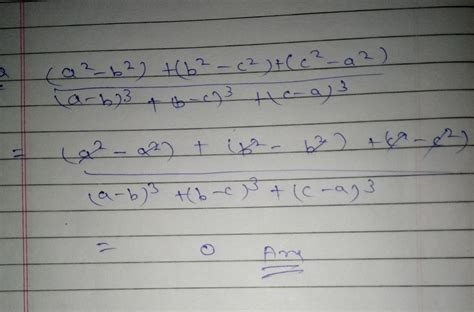 (a²-b²) +(b²-c²)+(c²-a²)
(a-b)³ + (b-c)³ +(c-a)³
= (a²-a²) + (b²- b²) +(c²-c²)
(a-b)³ +(b-c)³ +(c-a)³
= 0 Ans